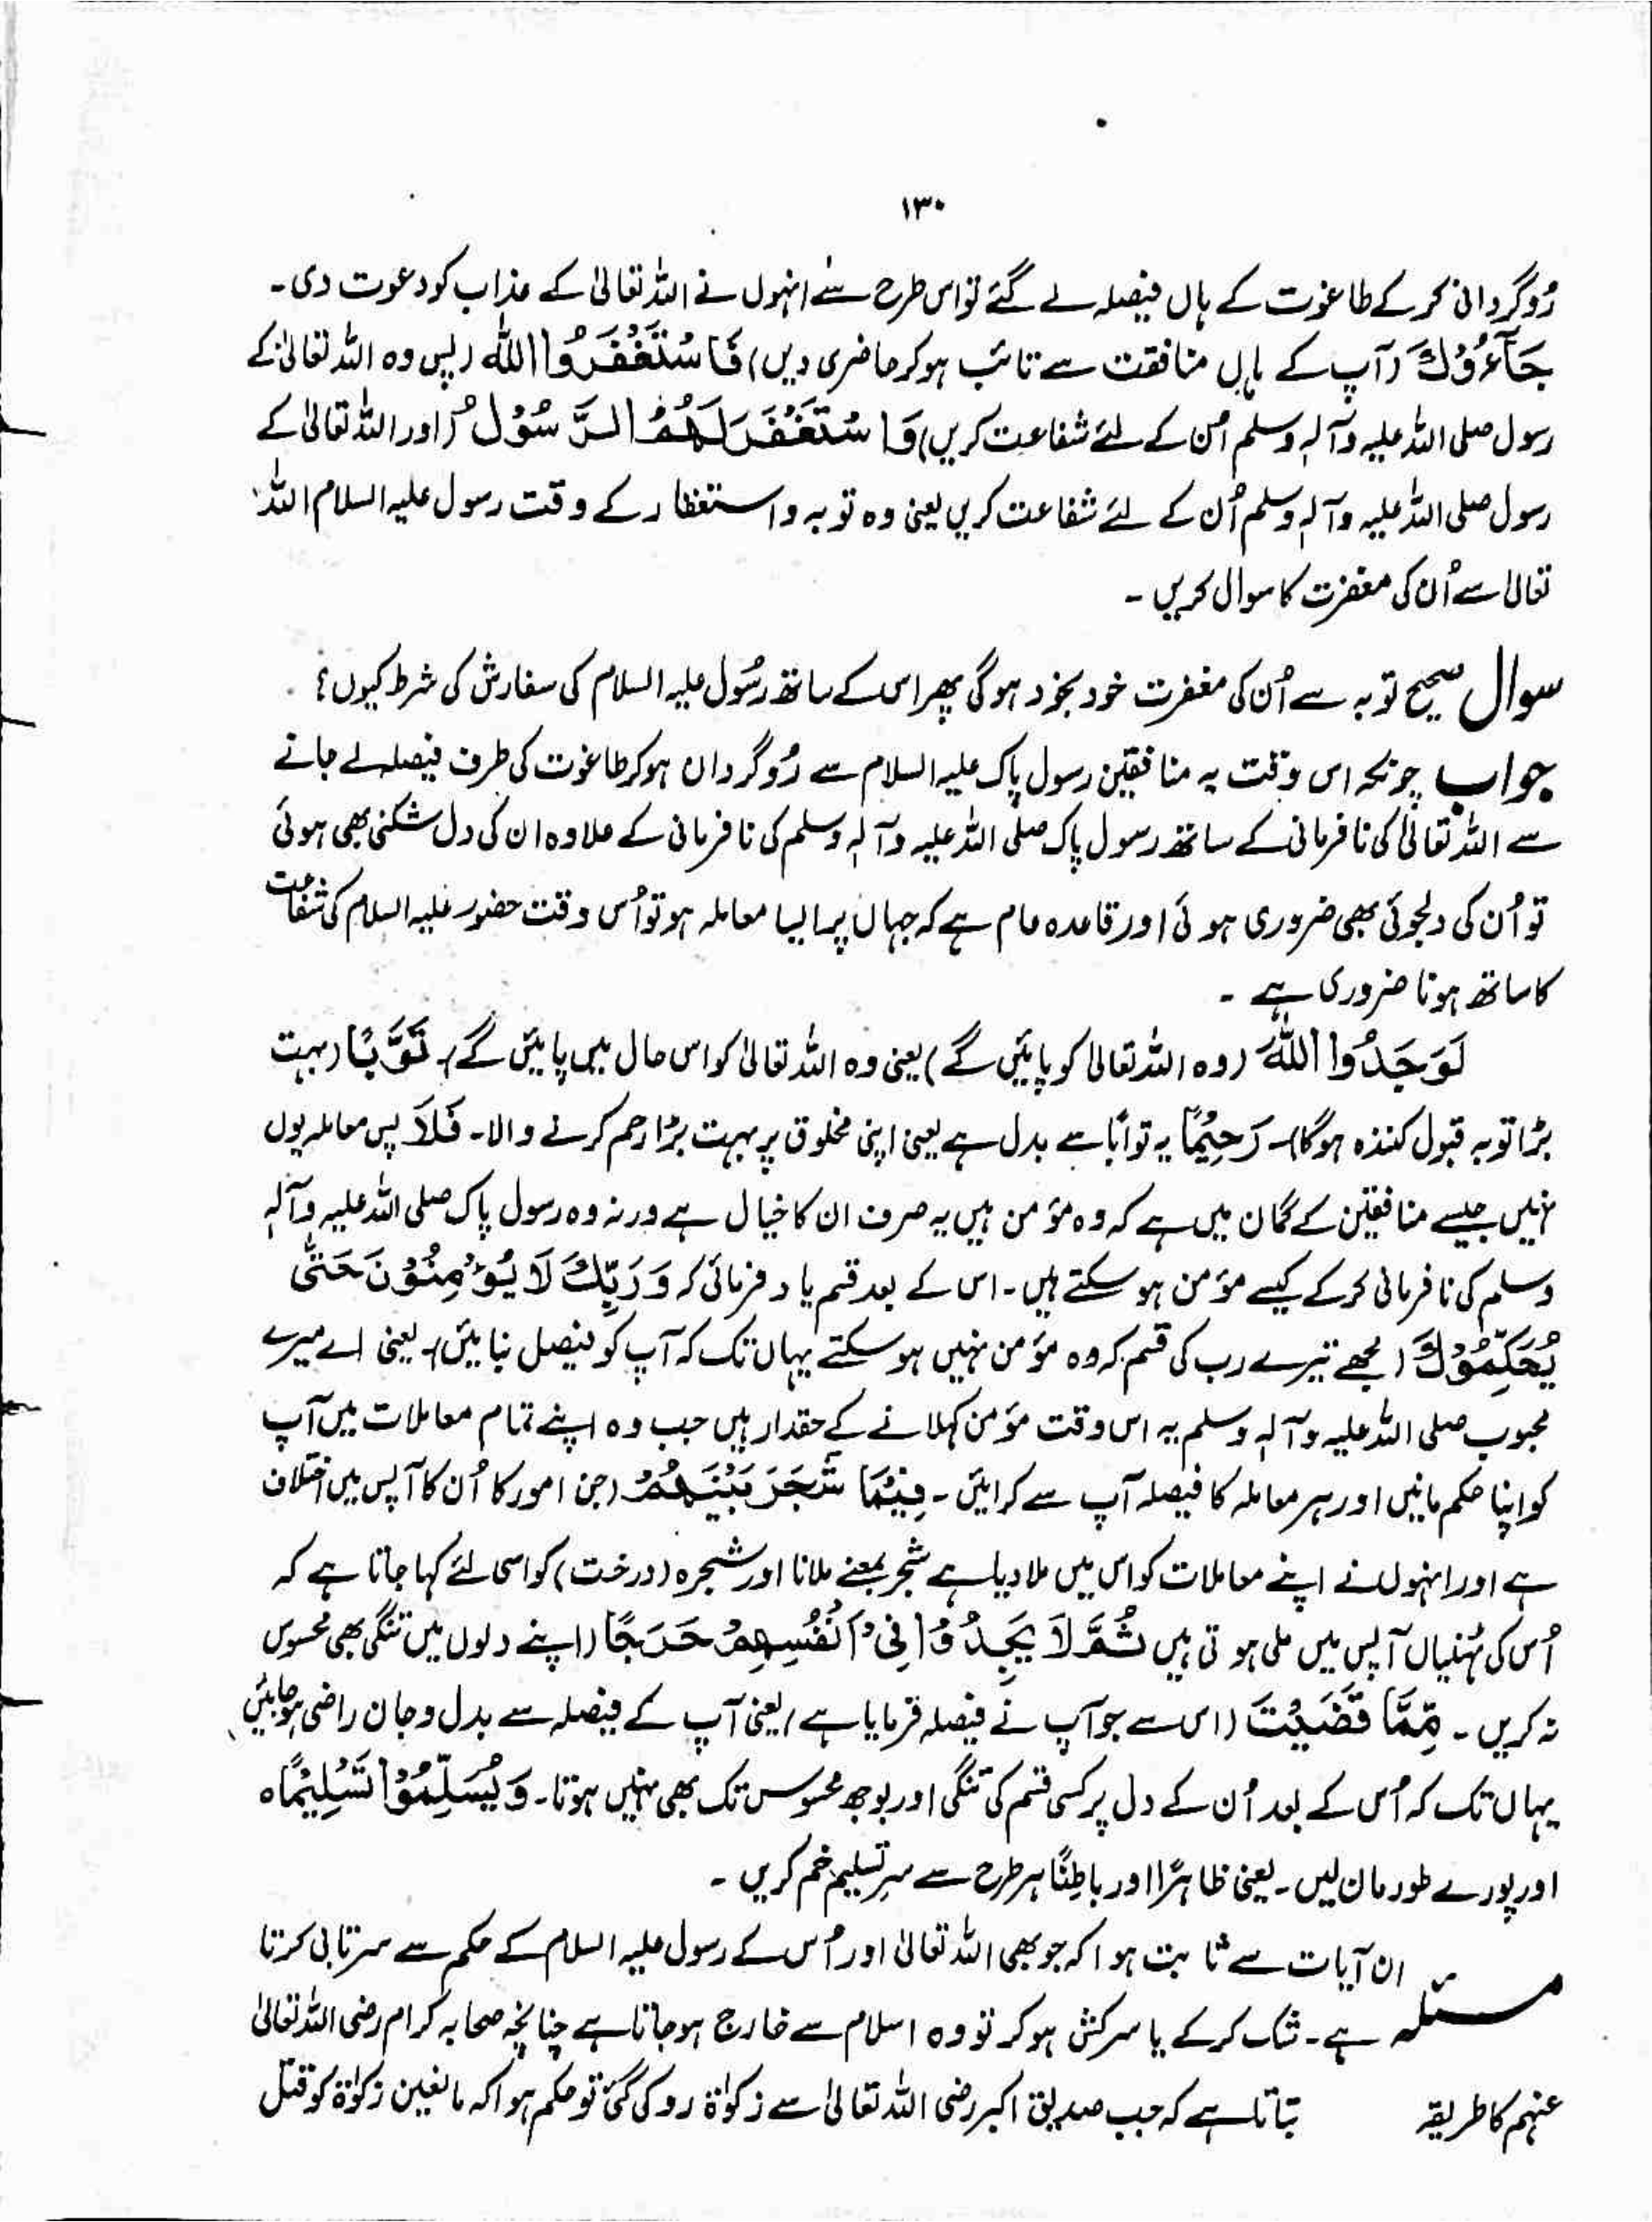 ۱۳۰
رُوگردانی کرکے طاغوت کے ہاں فیصلہ لے گئے تو اس طرح سے انہوں نے اللہ تعالیٰ کے عذاب کو دعوت دی۔
جَآءُوْكَ (آپ کے ہاں منافقت سے تائب ہوکر حاضری دیں) فَاسْتَغْفَرُوا اللّٰهَ (پس وہ اللہ تعالیٰ کے
رسول صلی اللہ علیہ وآلہٖ وسلم اُن کے لئے شفاعت کریں) وَاسْتَغْفَرَ لَهُمُ الرَّسُوْلُ (اور اللہ تعالیٰ کے
رسول صلی اللہ علیہ وآلہٖ وسلم اُن کے لئے شفاعت کریں یعنی وہ توبہ و استغفار کے وقت رسول علیہ السلام اللہ
تعالیٰ سے اُن کی مغفرت کا سوال کریں۔
سوال صحیح توبہ سے اُن کی مغفرت خود بخود ہوگی پھر اس کے ساتھ رسُول علیہ السلام کی سفارش کی شرط کیوں؟
جواب چونکہ اس وقت یہ منافقین رسول پاک علیہ السلام سے رُوگرداں ہوکر طاغوت کی طرف فیصلہ لے جانے
سے اللہ تعالیٰ کی نافرمانی کے ساتھ رسول پاک صلی اللہ علیہ وآلہٖ وسلم کی نافرمانی کے علاوہ ان کی دل شکنی بھی ہوئی
تو اُن کی دلجوئی بھی ضروری ہوئی اور قاعدہ عام ہے کہ جہاں پر ایسا معاملہ ہو تو اُس وقت حضور علیہ السلام کی شفاعت
کا ساتھ ہونا ضروری ہے۔
لَوَجَدُوا اللّٰهَ (وہ اللہ تعالیٰ کو پائیں گے) یعنی وہ اللہ تعالیٰ کو اس حال میں پائیں گے)۔ تَوَّابًا (بہت
بڑا توبہ قبول کنندہ ہوگا)۔ رَحِيْمًا یہ تواباً سے بدل ہے یعنی اپنی مخلوق پر بہت بڑا رحم کرنے والا۔ فَلَا پس معاملہ یوں
نہیں جیسے منافقین کے گمان میں ہے کہ وہ مؤمن ہیں یہ صرف ان کا خیال ہے ورنہ وہ رسول پاک صلی اللہ علیہ وآلہٖ
وسلم کی نافرمانی کرکے کیسے مؤمن ہوسکتے ہیں۔ اس کے بعد قسم یاد فرمائی کہ وَرَبِّكَ لَا يُؤْمِنُوْنَ حَتّٰى
يُحَكِّمُوْكَ (مجھے تیرے رب کی قسم کہ وہ مؤمن نہیں ہوسکتے یہاں تک کہ آپ کو فیصل بنائیں)۔ یعنی اے میرے
محبوب صلی اللہ علیہ وآلہٖ وسلم یہ اس وقت مؤمن کہلانے کے حقدار ہیں جب وہ اپنے تمام معاملات میں آپ
کو اپنا حکم مانیں اور ہر معاملہ کا فیصلہ آپ سے کرائیں۔ فِيْمَا شَجَرَ بَيْنَهُمْ (جن امور کا اُن کا آپس میں اختلاف
ہے اور انہوں نے اپنے معاملات کو اس میں ملا دیا ہے شجر بمعنے ملانا اور شجرہ (درخت) کو اسی لئے کہا جاتا ہے کہ
اُس کی ٹہنیاں آپس میں ملی ہوتی ہیں ثُمَّ لَا يَجِدُوْا فِيْ اَنْفُسِهِمْ حَرَجًا (اپنے دلوں میں تنگی بھی محسوس
نہ کریں۔ مِّمَّا قَضَيْتَ (اس سے جو آپ نے فیصلہ فرمایا ہے) یعنی آپ کے فیصلہ سے بدل وجان راضی ہوجائیں
یہاں تک کہ اُس کے بعد اُن کے دل پر کسی قسم کی تنگی اور بوجھ محسوس تک بھی نہیں ہوتا۔ وَيُسَلِّمُوْا تَسْلِيْمًا ہ
اور پورے طور مان لیں۔ یعنی ظاہرًا اور باطِنًا ہر طرح سے سرِ تسلیم خم کریں۔
ان آیات سے ثابت ہوا کہ جو بھی اللہ تعالیٰ اور اُس کے رسول علیہ السلام کے حکم سے سرتابی کرتا
مسئلہ ہے۔ شک کرکے یا سرکش ہوکر تو وہ اسلام سے خارج ہوجاتا ہے چنانچہ صحابہ کرام رضی اللہ تعالیٰ
عنہم کا طریقہ بتاتا ہے کہ جب صدیق اکبر رضی اللہ تعالیٰ سے زکوٰۃ روکی گئی تو حکم ہوا کہ مانعین زکوٰۃ کو قتل